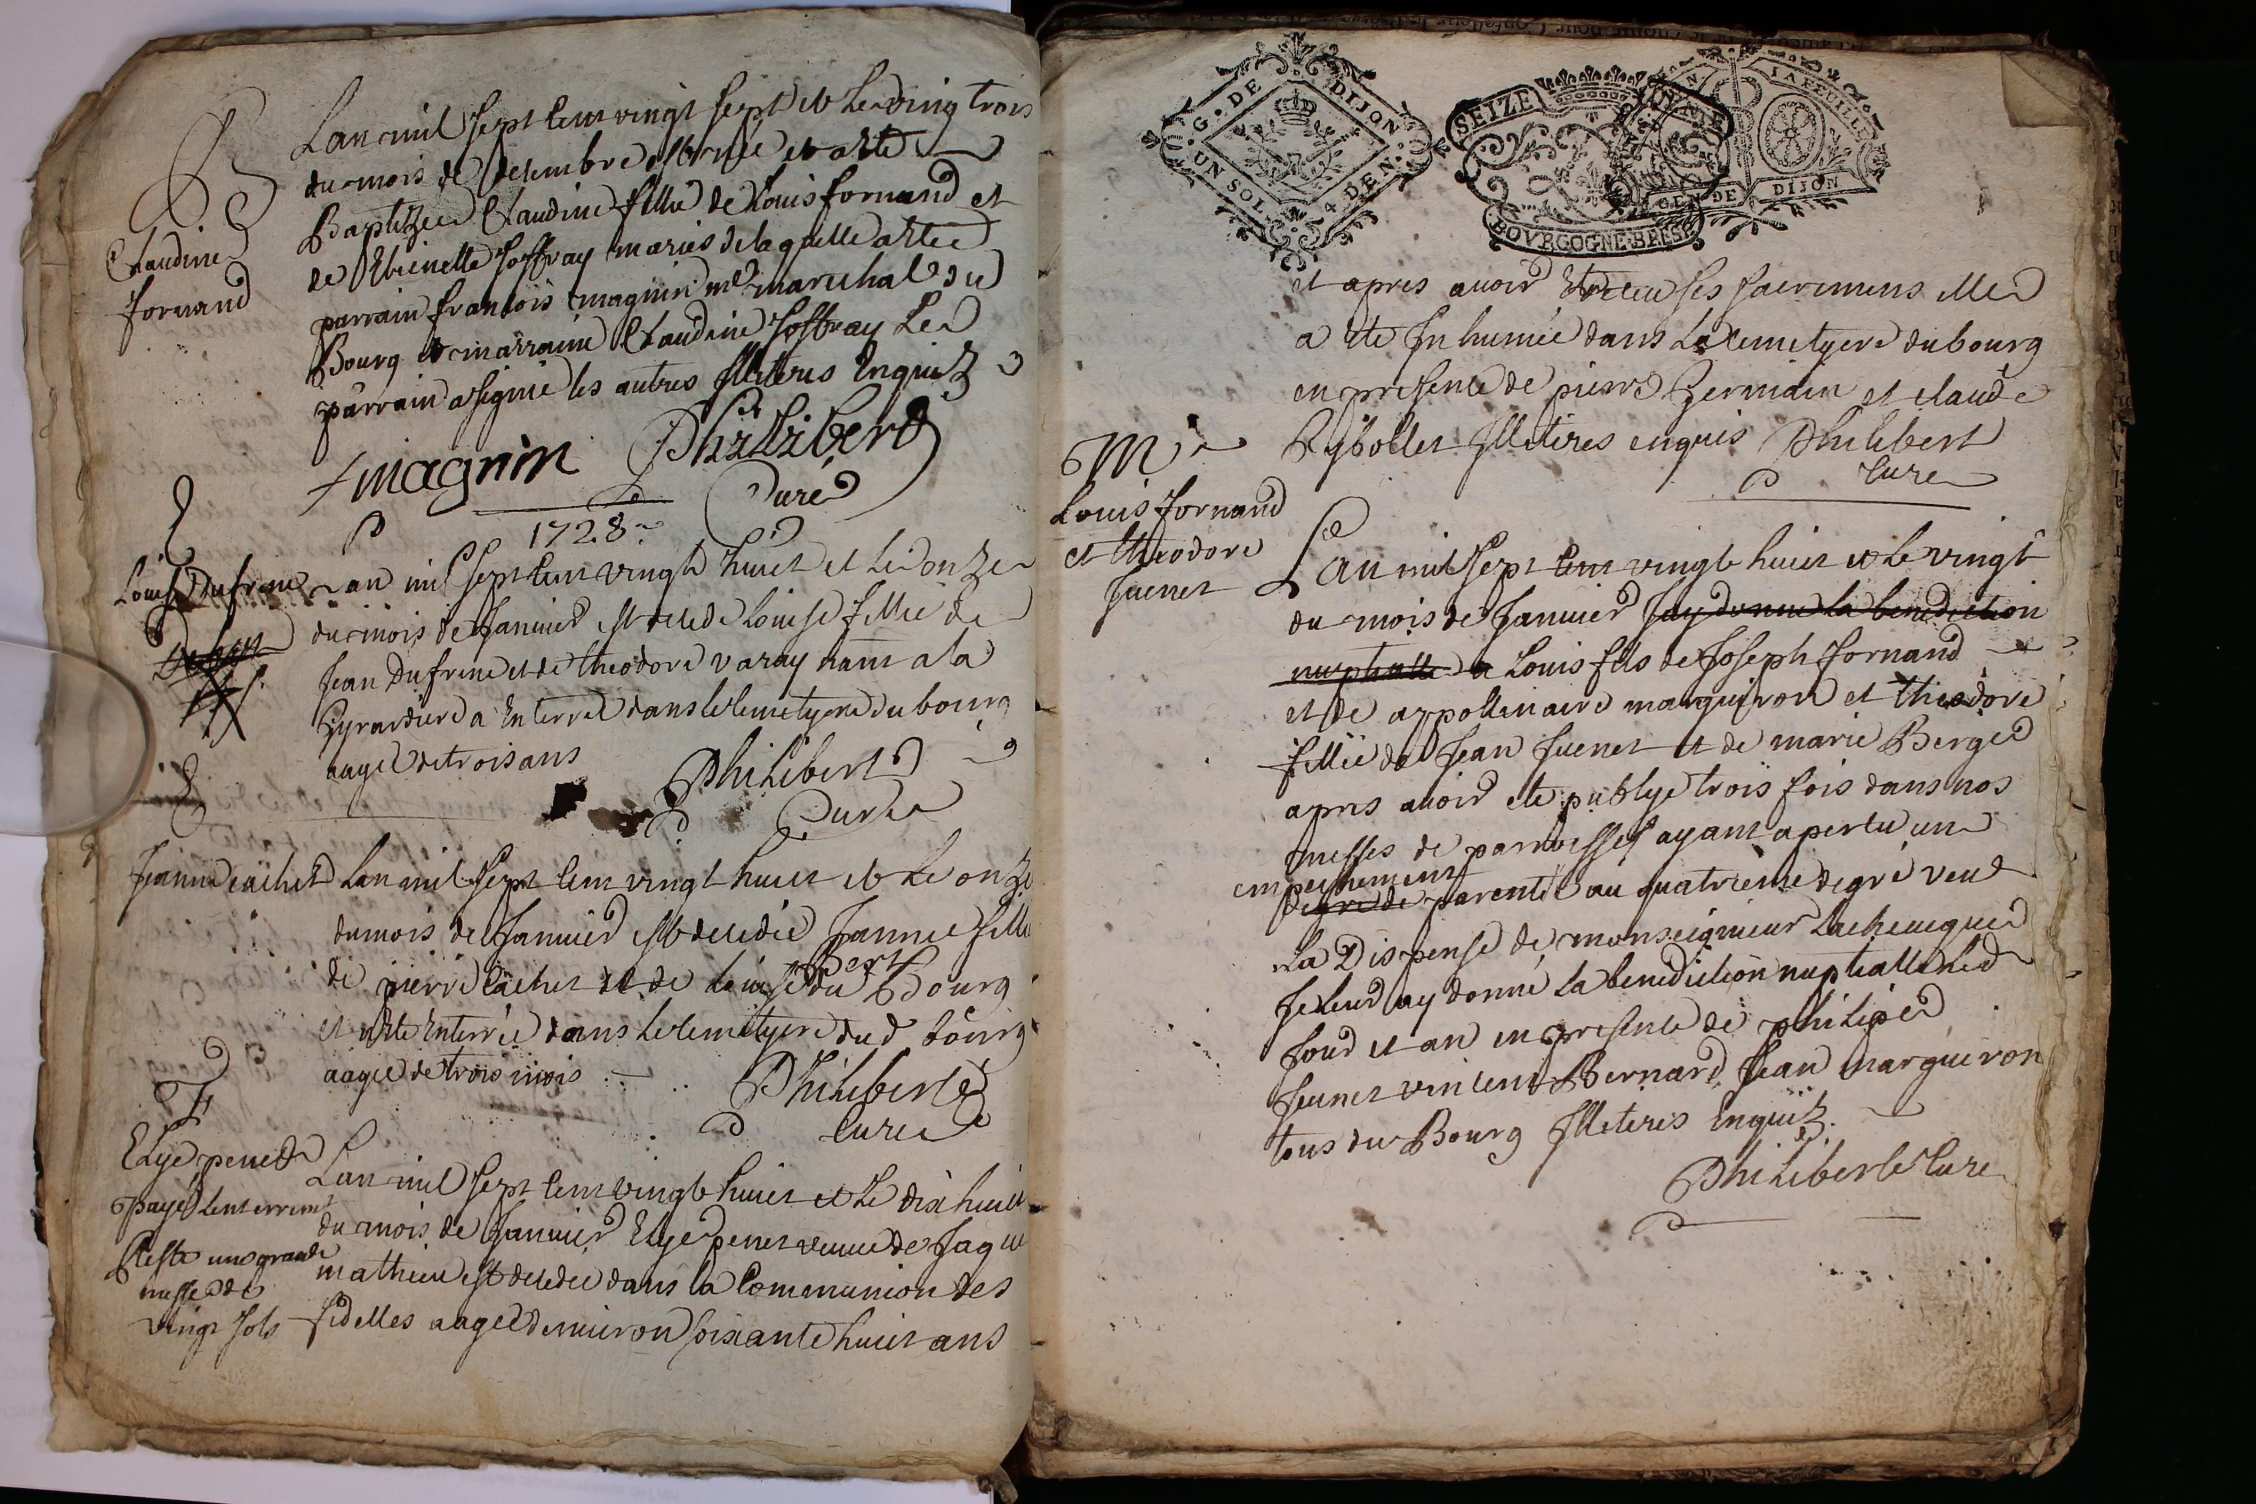 B
Claudine
fornand
Lan mil sept cent vingt sept et le ving trois
du mois de desembre est née et a été
Baptizée Claudine fillie de Louis fornand et
de Etienette Joffray mariés delaquelle a été
parrain francois magnin me marechal du
Bourg et marraine Claudine Joffray Le
parrain a signé les autres illiteres Enquis
f magnin Philibert
Curé
1728
Louise Dufrene
Lan mil sept cent vingt huict et le onze
du mois de Janvier est decede Louise fillie de
Jean Dufrene et de theodore varay hant a la
Gyrardiere a Enterré dans le cemetyere du bourg
aagee de trois ans
Philibert
Curé
Jeanne cachet
Lan mil sept cent vingt huict et le onze
du mois de Janvier est decedée Jeanne fillie
de pierre cachet et de Louise du Bourg
et a été Enterrée dans le cemetyere dud bourg
aagee de trois mois
Philibert
curé
Elye penet
payé lenterremt
Reste une grande
messe de
vingt sols
Lan mil sept cent vingt huict et le dix huict
du mois de Janvier Elye penet veuve de Jaque
mathieu est decedee dans la Communion des
fidelles aagee denviron soixante huict ans
G. DE DIJON
UN SOL. 4 DEN.
SEIZE
BOVRGOGNE-BRESSE
LA FEUILLE
GEN DE DIJON
et apres avoir receu ses sacremens elle
a ete Inhumée dans Le cemetyere du bourg
en presence de pierre Germain et claude
Rybollet Illiteres enquis Philibert
Curé
M
Louis fornand
et theodore
Juenet
Lan mil sept cent vingt huict et le vingt
du mois de Janvier Jay donné la benediction
nuptialle a Louis fils de Joseph fornand
et de appollinaire marguiron et theodore
fillie de Jean Juenet et de marie Berger
apres avoir ete publye trois fois dans nos
messes de parroisses ayant aperceu un
empechement
degre de parenté au quatrieme degré veu
La Dispense de monseigneur Larcheveque
Je leur ay donné La benediction nuptialle led
Jour et an en presence de philipe
Juenet vincent Bernard Jean margueron
tous du Bourg Illiteres Enquis
Philibert Curé